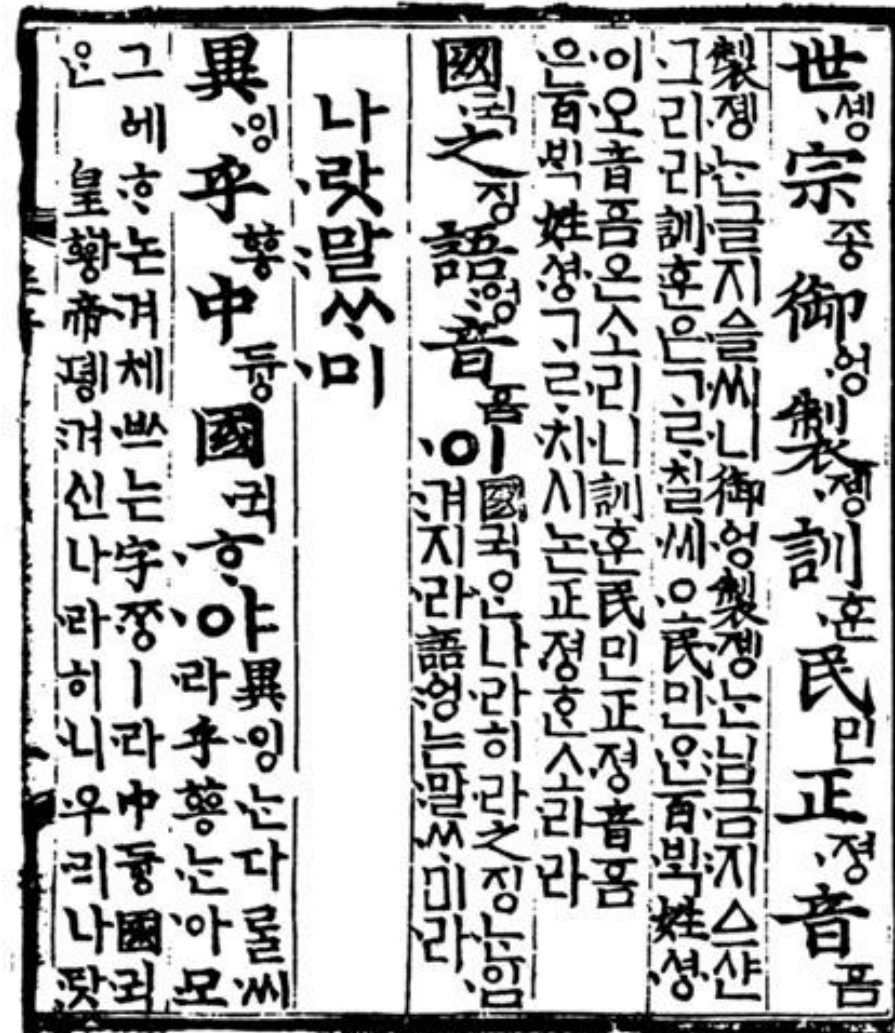 世솅〮宗조ᇰ御ᅌᅥᆼ〮製졩〮訓훈〮民민正져ᇰ〮音ᅙᅳᆷ
製졩〮ᄂᆞᆫ〮글〮지ᅀᅳᆯ〮씨니〮御ᅌᅥᆼ〮製졩〮ᄂᆞᆫ〮님〯금지ᅀᅳ샨〮
그〮리라〮訓훈〮은〮ᄀᆞᄅᆞ칠〮씨오〮民민ᄋᆞᆫ〮百ᄇᆡᆨ〮姓셔ᇰ〮
이〮오〮音ᅙᅳᆷ은〮소리〮니〮訓훈〮民민正져ᇰ〮音ᅙᅳᆷ
은〮百ᄇᆡᆨ〮姓셔ᇰ〮ᄀᆞᄅᆞ치시〮논〮正져ᇰ〮ᄒᆞᆫ소리〮라
國귁〮之징語ᅌᅥᆼ〯音ᅙᅳᆷ이〮
國귁〮ᄋᆞᆫ〮나라〮히〮라〮之징ᄂᆞᆫ〮입〮
겨지〮라〮語ᅌᅥᆼ〯는〮말〯ᄊᆞ미〮라〮
나랏〮말〯ᄊᆞ미〮
異잉〮乎ᅘᅩᆼ中듀ᇰ國귁〮ᄒᆞ〮야〮
異잉〮ᄂᆞᆫ〮다ᄅᆞᆯ〮씨〮
라〮乎ᅘᅩᆼᄂᆞᆫ〮아〮모〮
그ᅌᅦ〮ᄒᆞ논〮겨체〮ᄡᅳ는〮字ᄍᆞᆼㅣ〮라〮中듀ᇰ國귁〮
ᄋᆞᆫ〮皇ᅘᅪᆼ帝뎽〮겨〯신나라〮히니〮우리〮나랏〮